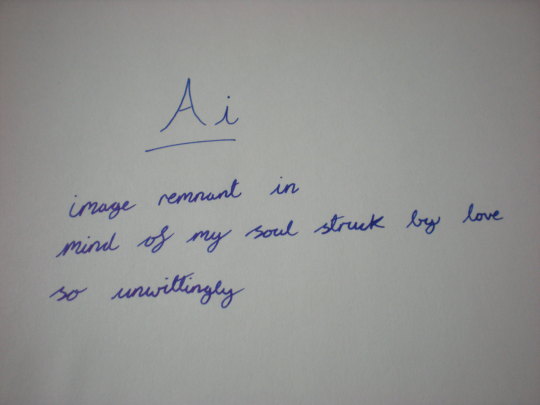 Ai
image remnant in
mind of my soul struck by love
so unwittingly